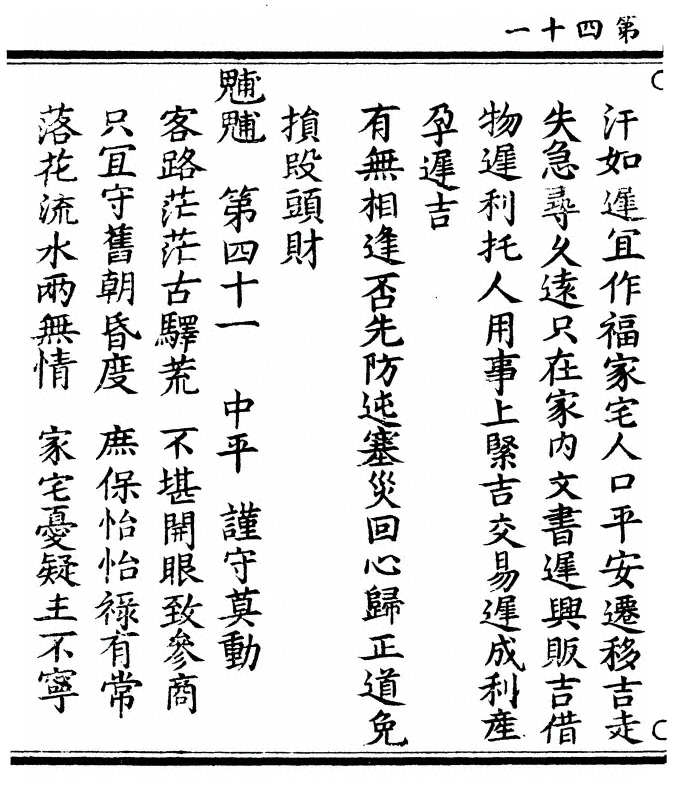 第四十一
汗如遲宜作福家宅人口平安遷移吉走
失急尋久遠只在家內文書遲興販吉借
物遲利托人用事上緊吉交易遲成利產
孕遲吉
有無相逢否先防迍塞災回心歸正道免
損段頭財
第四十一 中平 謹守莫動
客路茫茫古驛荒 不堪開眼致參商
只宜守舊朝昏度 庶保怡怡祿有常
落花流水兩無情 家宅憂疑主不寧